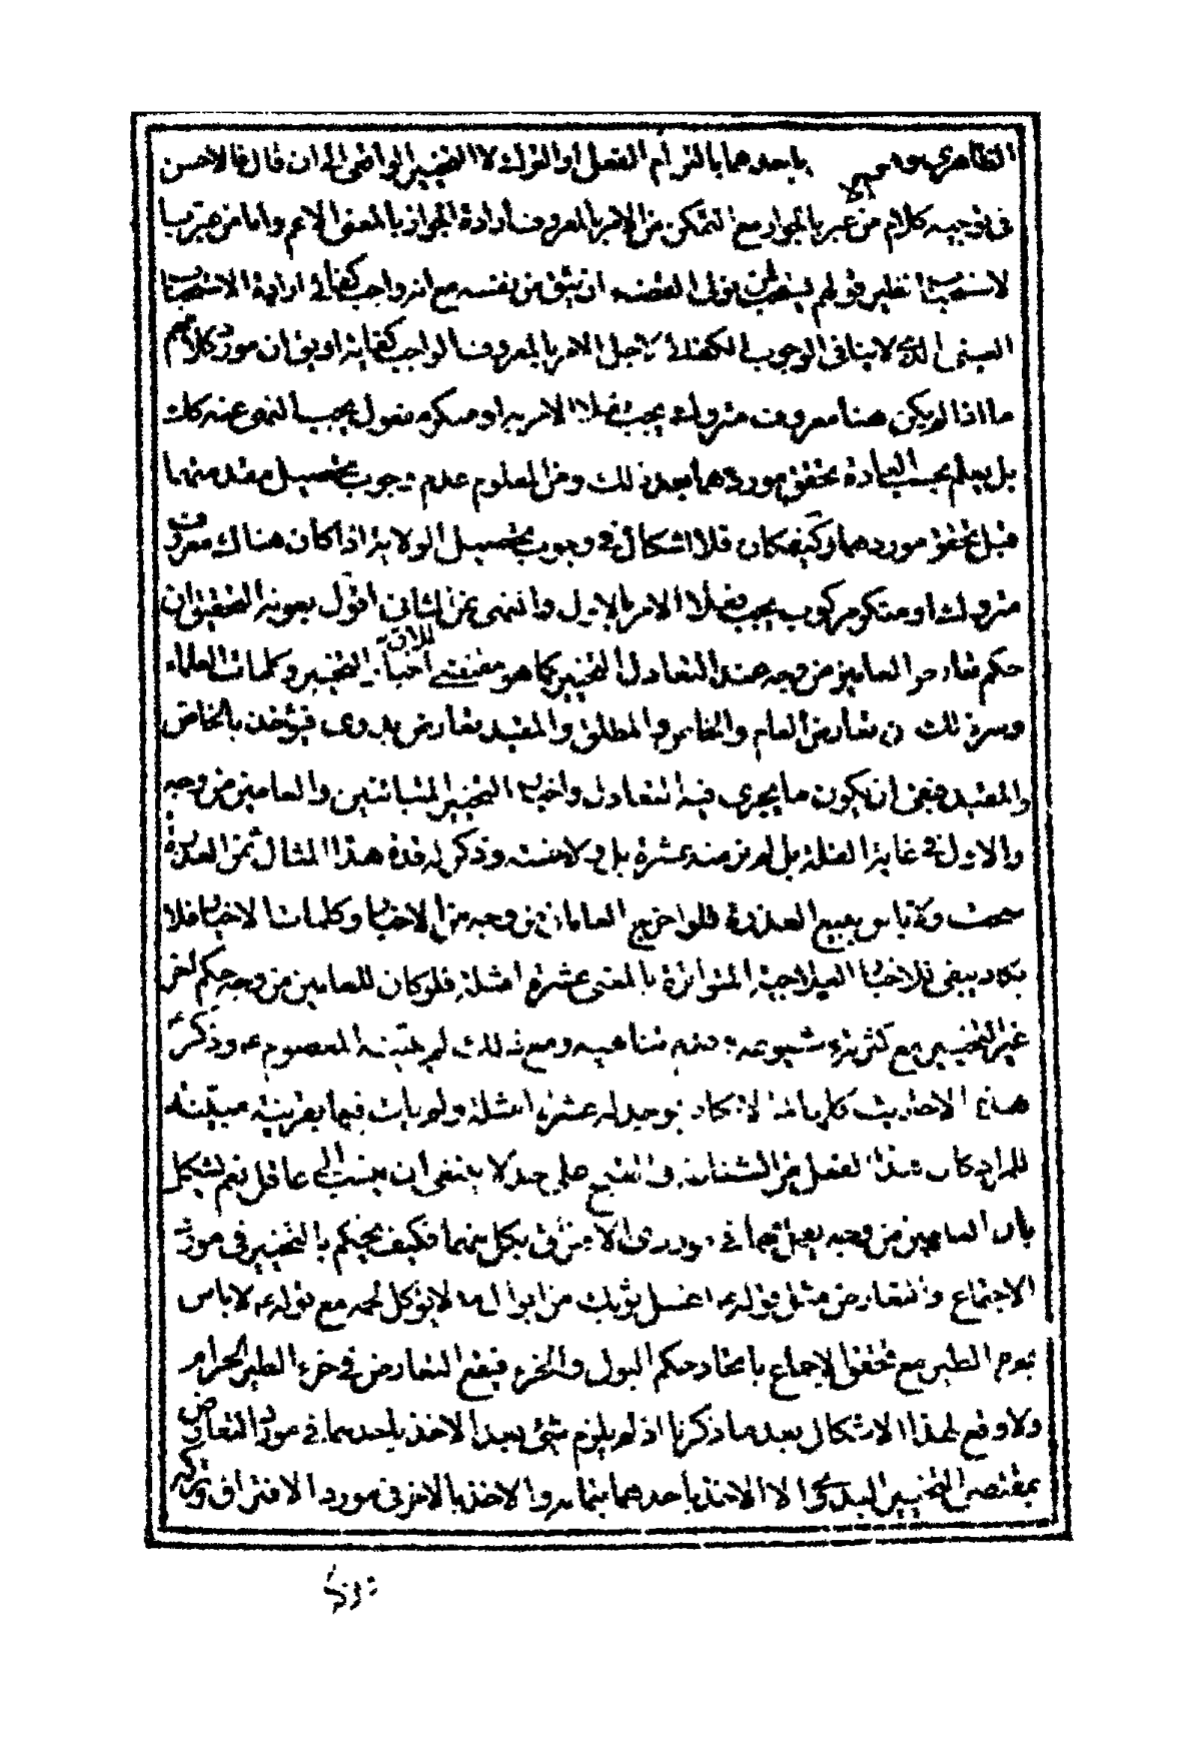 الظاهري هو الاخذ باحدهما بالتزام الفعل او الترك لا التخيير الواقعى الى ان قال فالاحسن
فى توجيه كلام من عبر بالجواز مع التمكن من الامر بالمعروف ارادة الجواز بالمعنى الاعم واما من عبر با
لاستحباب نظير قولهم يستحب تولى القضاء لمن يثق من نفسه مع انه واجب كفائى ارادة الاستحباب
العينى الذى لا ينافى الوجوب الكفائى لاجل الامر بالمعروف الواجب كفاية او يق ان مورد كلامهم
ما اذا لم يكن هنا معروف متروك يجب فعلا الامر به او منكر مفعول يجب النهى عنه كك
بل يعلم بحسب العادة تحقق موردهما بعد ذلك ومن المعلوم عدم وجوب تحصيل مقدمتهما
قبل تحقق موردهما وكيف كان فلا اشكال فى وجوب تحصيل الولاية اذا كان هناك معروف
متروك او منكر مركوب يجب فعلا الامر بالاول والنهى عن الثانى اقول بعونه التحقيق ان
حكم تعارض العامين من وجه عند التعادل التخيير كما هو مقتضى اطلاق اخبار التخيير وكلمات العلماء
وسر ذلك ان تعارض العام والخاص والمطلق والمقيد تعارض بدوى فيؤخذ بالخاص
والمقيد فبقى ان يكون ما يجرى فيه التعادل واخبار التخيير المتباينين والعامين من وجه
والاول فى غاية القلة بل لم نر منه عشرة بل ولا ستة وذكر له قده هذا المثال ثمن العذرة
سحت ولا باس ببيع العذرة فلو اخرج العامان من وجه من الاخبار وكلمات الاخيار فلا
يكاد يبقى للاخبار العلاجية المتواترة بالمعنى عشرة امثلة فلو كان للعامين من وجه حكم اخر
غير التخيير مع كثرته وشيوعه وعدم تناهيه ومع ذلك لم يبينه المعصوم ع وذكر
هذه الاحاديث كلها لما لا يكاد يوجد له عشرة امثلة ولم يات فيها بقرينة مبينة
للمراد كان هذا الفعل من الشناعة والقبح على حد لا ينبغى ان ينسب الى عاقل نعم يشكل
بان العامين من وجه يعمل بهما فى موردى الافتراق بكل منهما فكيف يحكم بالتخيير فى مورد
الاجتماع والتعارض مثل قوله ع اغسل ثوبك من ابوال ما لا يؤكل لحمه مع قوله ع لا باس
بخرء الطير مع تحقق الاجماع باتحاد حكم البول والخرء فيقع التعارض فى خرء الطير الحرام
ولا وقع لهذا الاشكال بعد ما ذكرنا اذ لم يلزم شئ بعد الاخذ باحدهما فى مورد التعارض
بمقتضى التخيير البدوى الا الاخذ باحدهما بتمامه والاخذ بالاخر فى مورد الافتراق وتركه